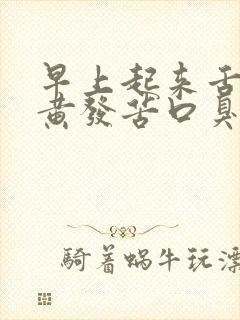 早上起来舌
黄發苦口臭
騎着蜗牛玩漂